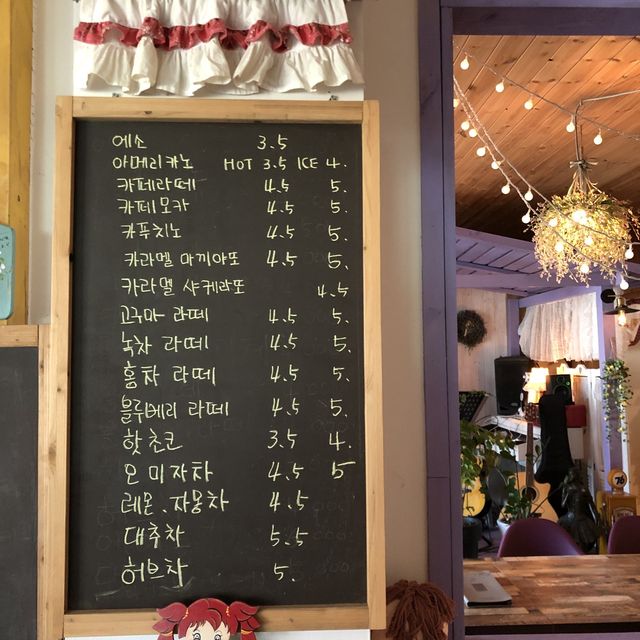 에소 3.5
아메리카노 HOT 3.5 ICE 4.
카페라떼 4.5 5.
카페모카 4.5 5.
카푸치노 4.5 5.
카라멜 마끼아또 4.5 5.
카라멜 샤케라또 4.5
고구마 라떼 4.5 5.
녹차 라떼 4.5 5.
홍차 라떼 4.5 5.
블루베리 라떼 4.5 5.
핫쵸코 3.5 4.
오미자차 4.5 5
레몬.자몽차 4.5
대추차 5.5
허브차 5.